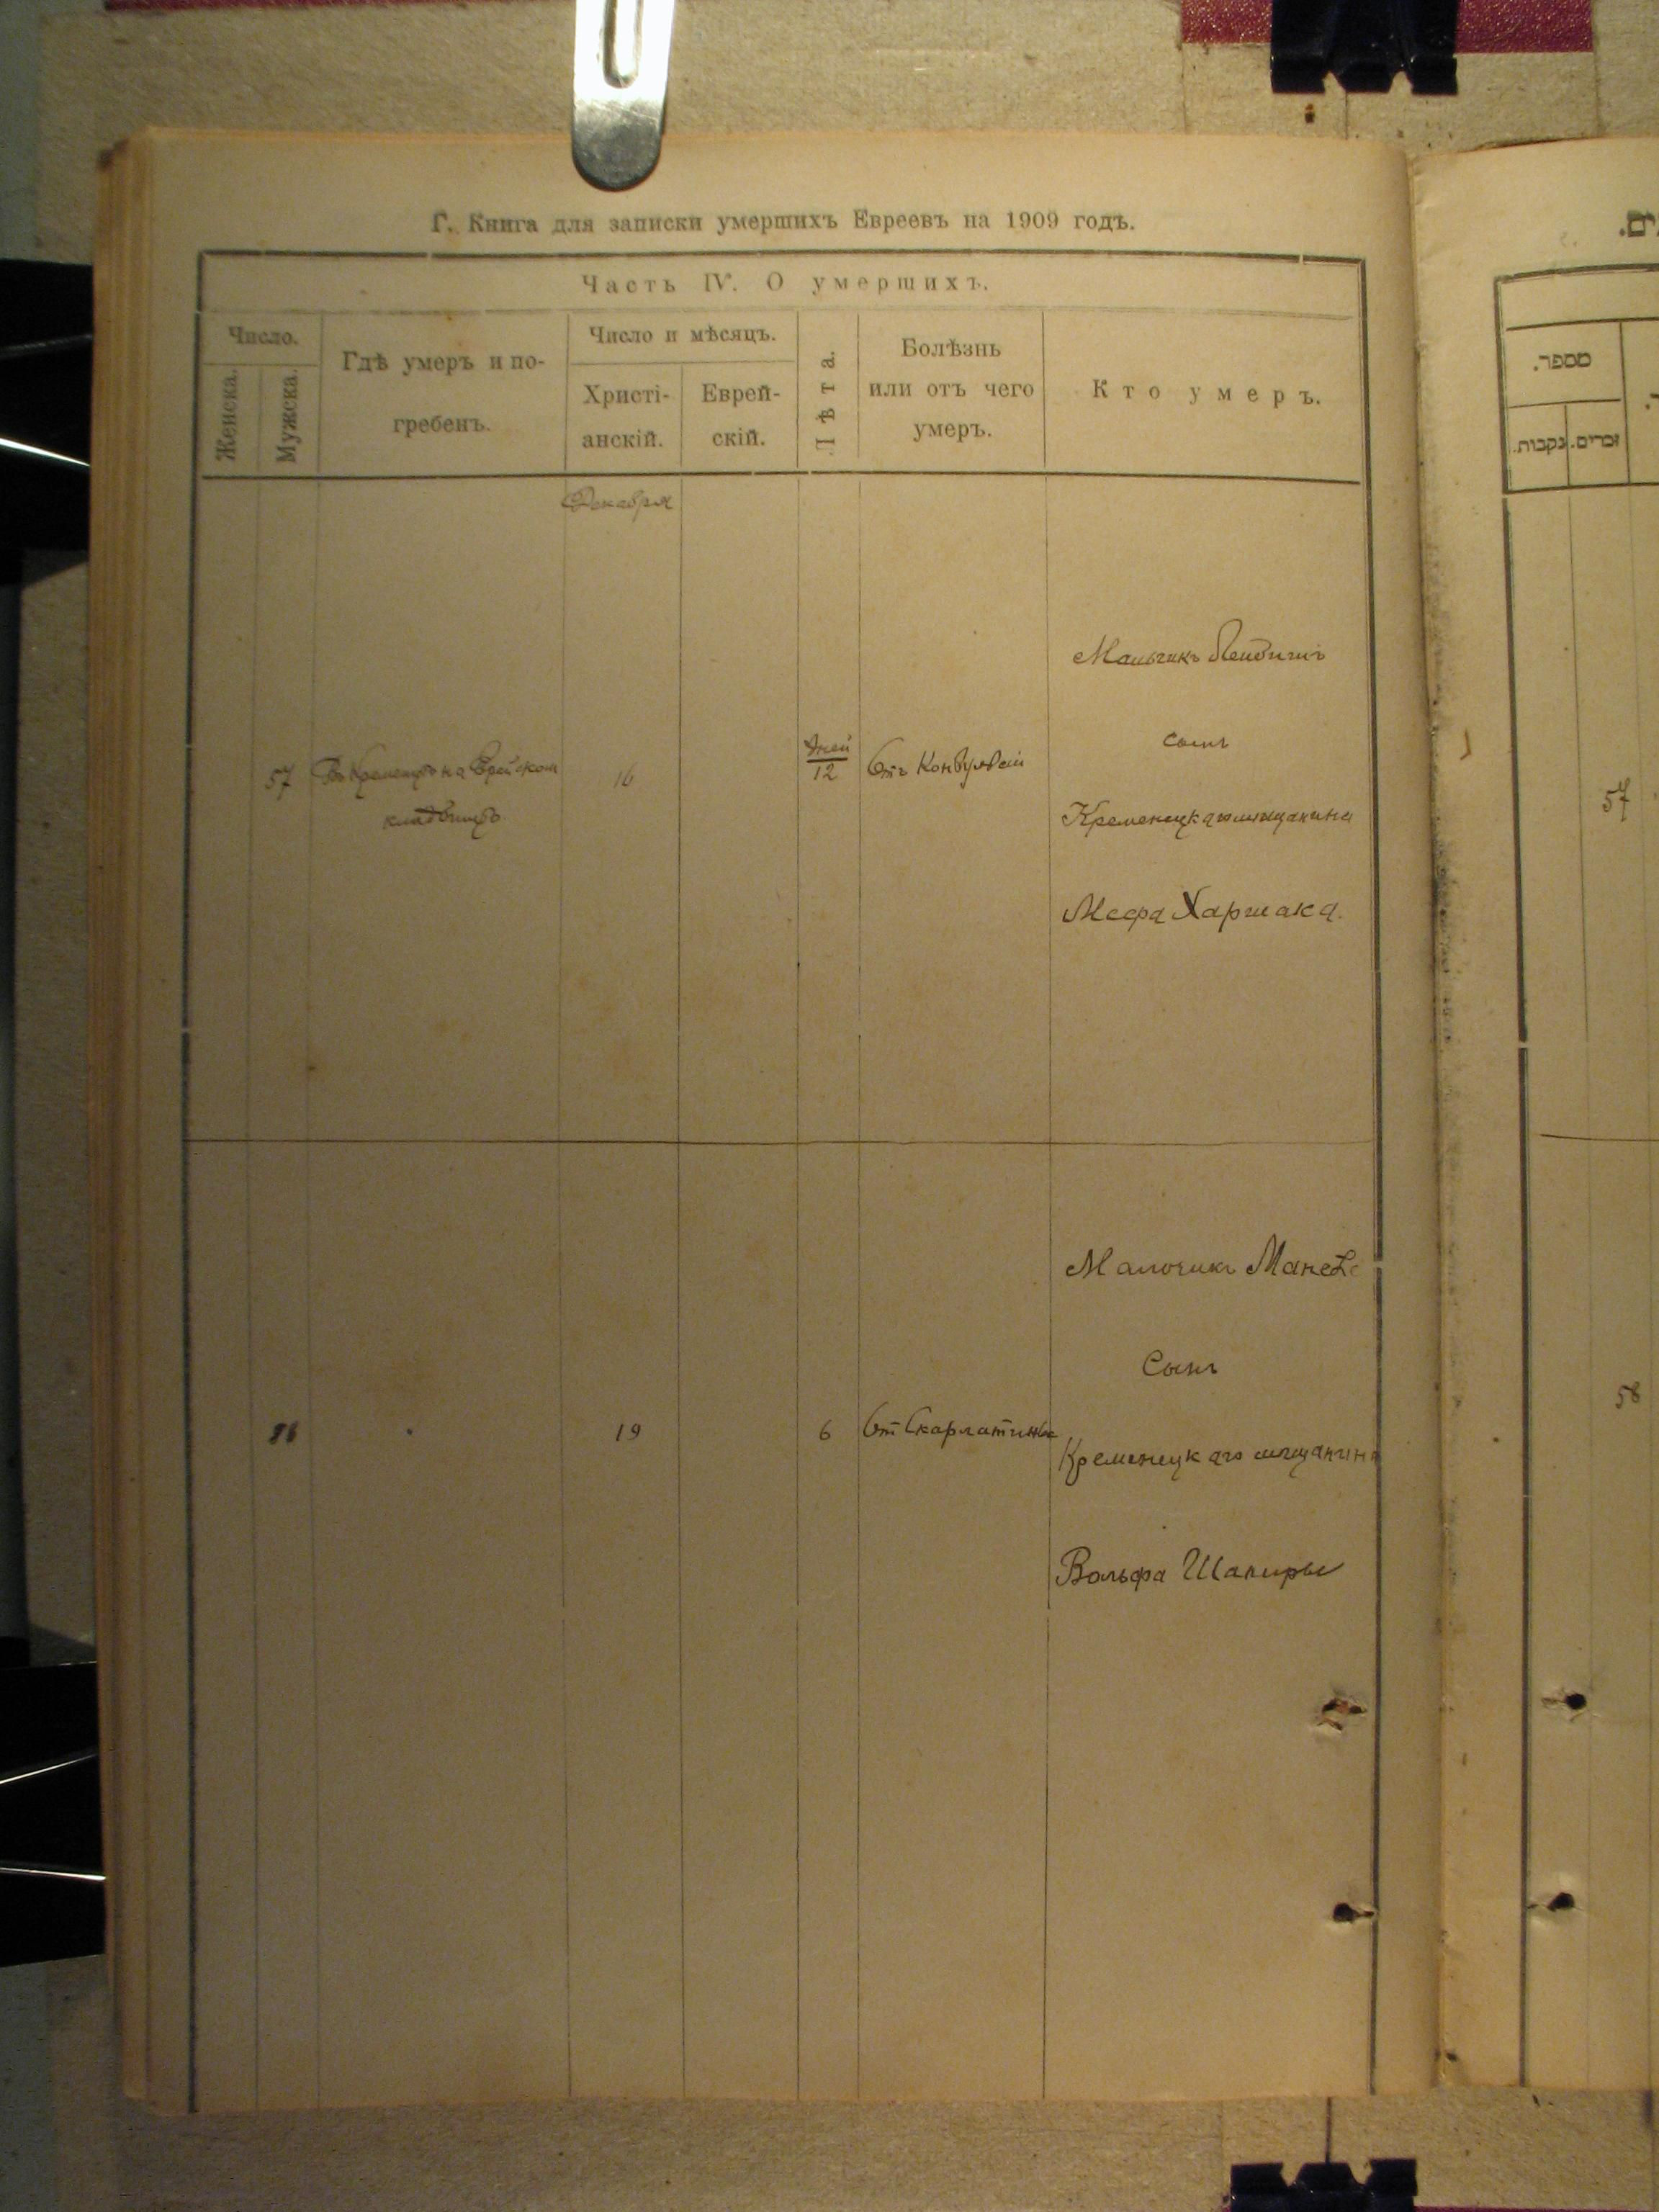 Г. Книга для записки умершихъ Евреевъ на 1909 годъ.
Часть IV. О умершихъ.
Число.
Женска.
Мужска.
Гдѣ умеръ и по-
гребенъ.
Число и мѣсяцъ.
Христі-
анскій.
Еврей-
скій.
Лѣта.
Болѣзнь
или отъ чего
умеръ.
Кто умеръ.
Декабря
57
Въ Кременцѣ на Еврейском
кладбищѣ
16
дней
12
Отъ Конвульсій
Мальчикъ
сынъ
Кременецкаго мѣщанина
Харшака.
19
6
От Скарлатины
Мальчикъ
Сынъ
Кременецкаго мѣщанина
Вольфа Шапиры
מספר.
זכרים.
נקבות.
57
58